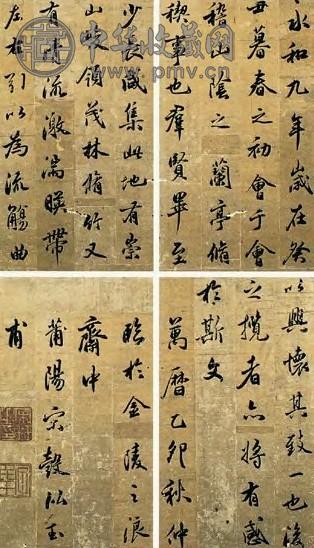 永和九年歲在癸
丑暮春之初會于會
稽山陰之蘭亭脩
禊事也羣賢畢至
少長咸集此地有崇
山峻領茂林脩竹又
有清流激湍暎帶
左右引以為流觴曲
以興懷其致一也後
之攬者亦將有感
於斯文
萬曆乙卯秋仲
臨於金陵之浪
齋中
莆陽宋瑴比玉
甫
www.pmv.cn